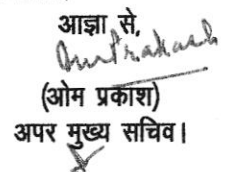 आज्ञा से,
(ओम प्रकाश)
अपर मुख्य सचिव।